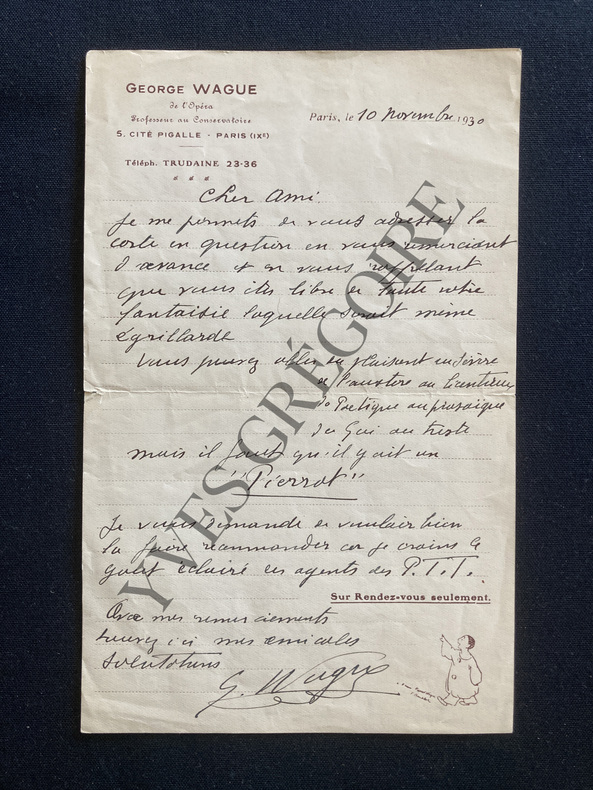 GEORGE WAGUE
de l'Opéra
Professeur au Conservatoire
5. CITÉ PIGALLE - PARIS (IXe)
Téléph. TRUDAINE 23-36
Paris, le 10 Novembre 1930
Cher Ami
Je me permets de vous adresser la
carte en question en vous remerciant
d'avance et en vous rappelant
que vous êtes libre de toute votre
fantaisie laquelle serait même
égrillarde
Vous pouvez aller du plaisant au sévère
de l'austère au licentieux
du Poetique au prosaïque
du Gai au triste
mais il faut qu'il y ait un
"Pierrot"
Je vous demande de vouloir bien
la faire recommander car je crains le
goût éclairé des agents des P.T.T.
Sur Rendez-vous seulement.
Avec mes remerciements
trouvez ici mes amicales
salutations
G. Wague
YVES GRÉGOIRE